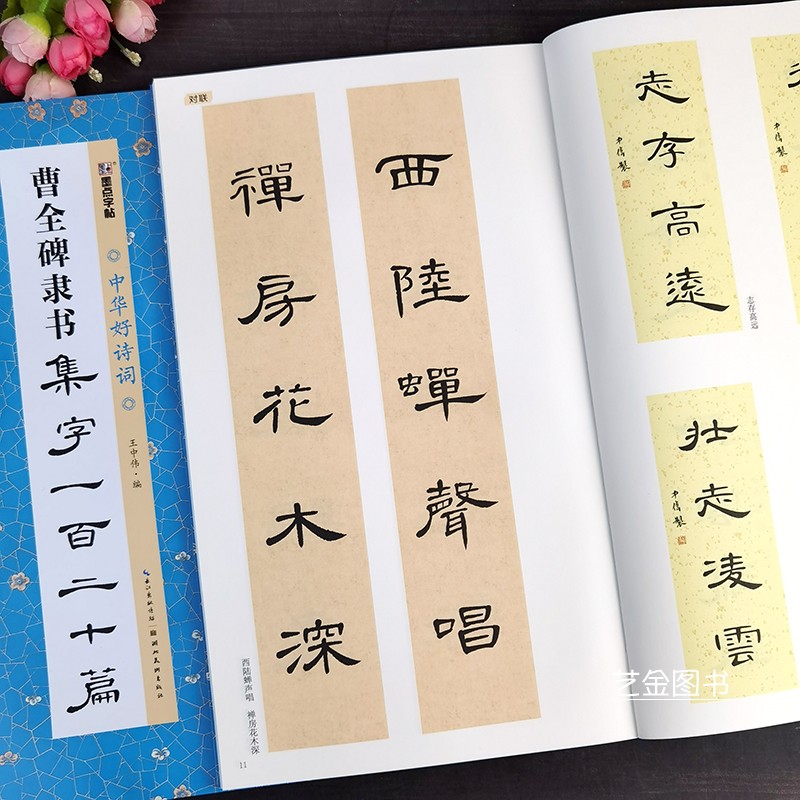 曹全碑隶书
集字一百二十篇
墨点字帖
中华好诗词
王中伟·编
长江出版传媒
湖北美术出版社
对联
西陸蟬聲唱
禪房花木深
西陆蝉声唱 禅房花木深
11
志存高遠
中偉製
志存高远
壯志凌雲
中偉製
艺金图书